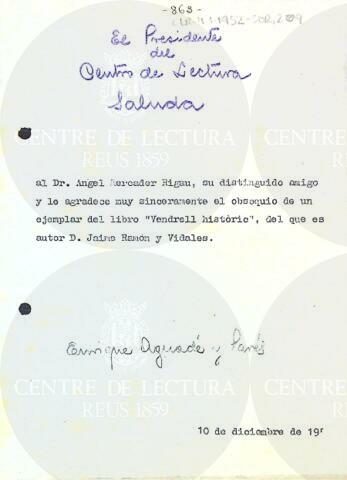 -863-
El Presidente
del
Centro de Lectura
Saluda
al Dr. Angel Mercader Rigau, su distinguido amigo
y le agradece muy sinceramente el obsequio de un
ejemplar del libro "Vendrell històric", del que es
autor D. Jaime Ramón y Vidales.
CENTRE DE LECTURA
REUS 1859
Enrique Aguadé y Parés
CENTRE DE LECTURA
REUS 1859
10 de diciembre de 19